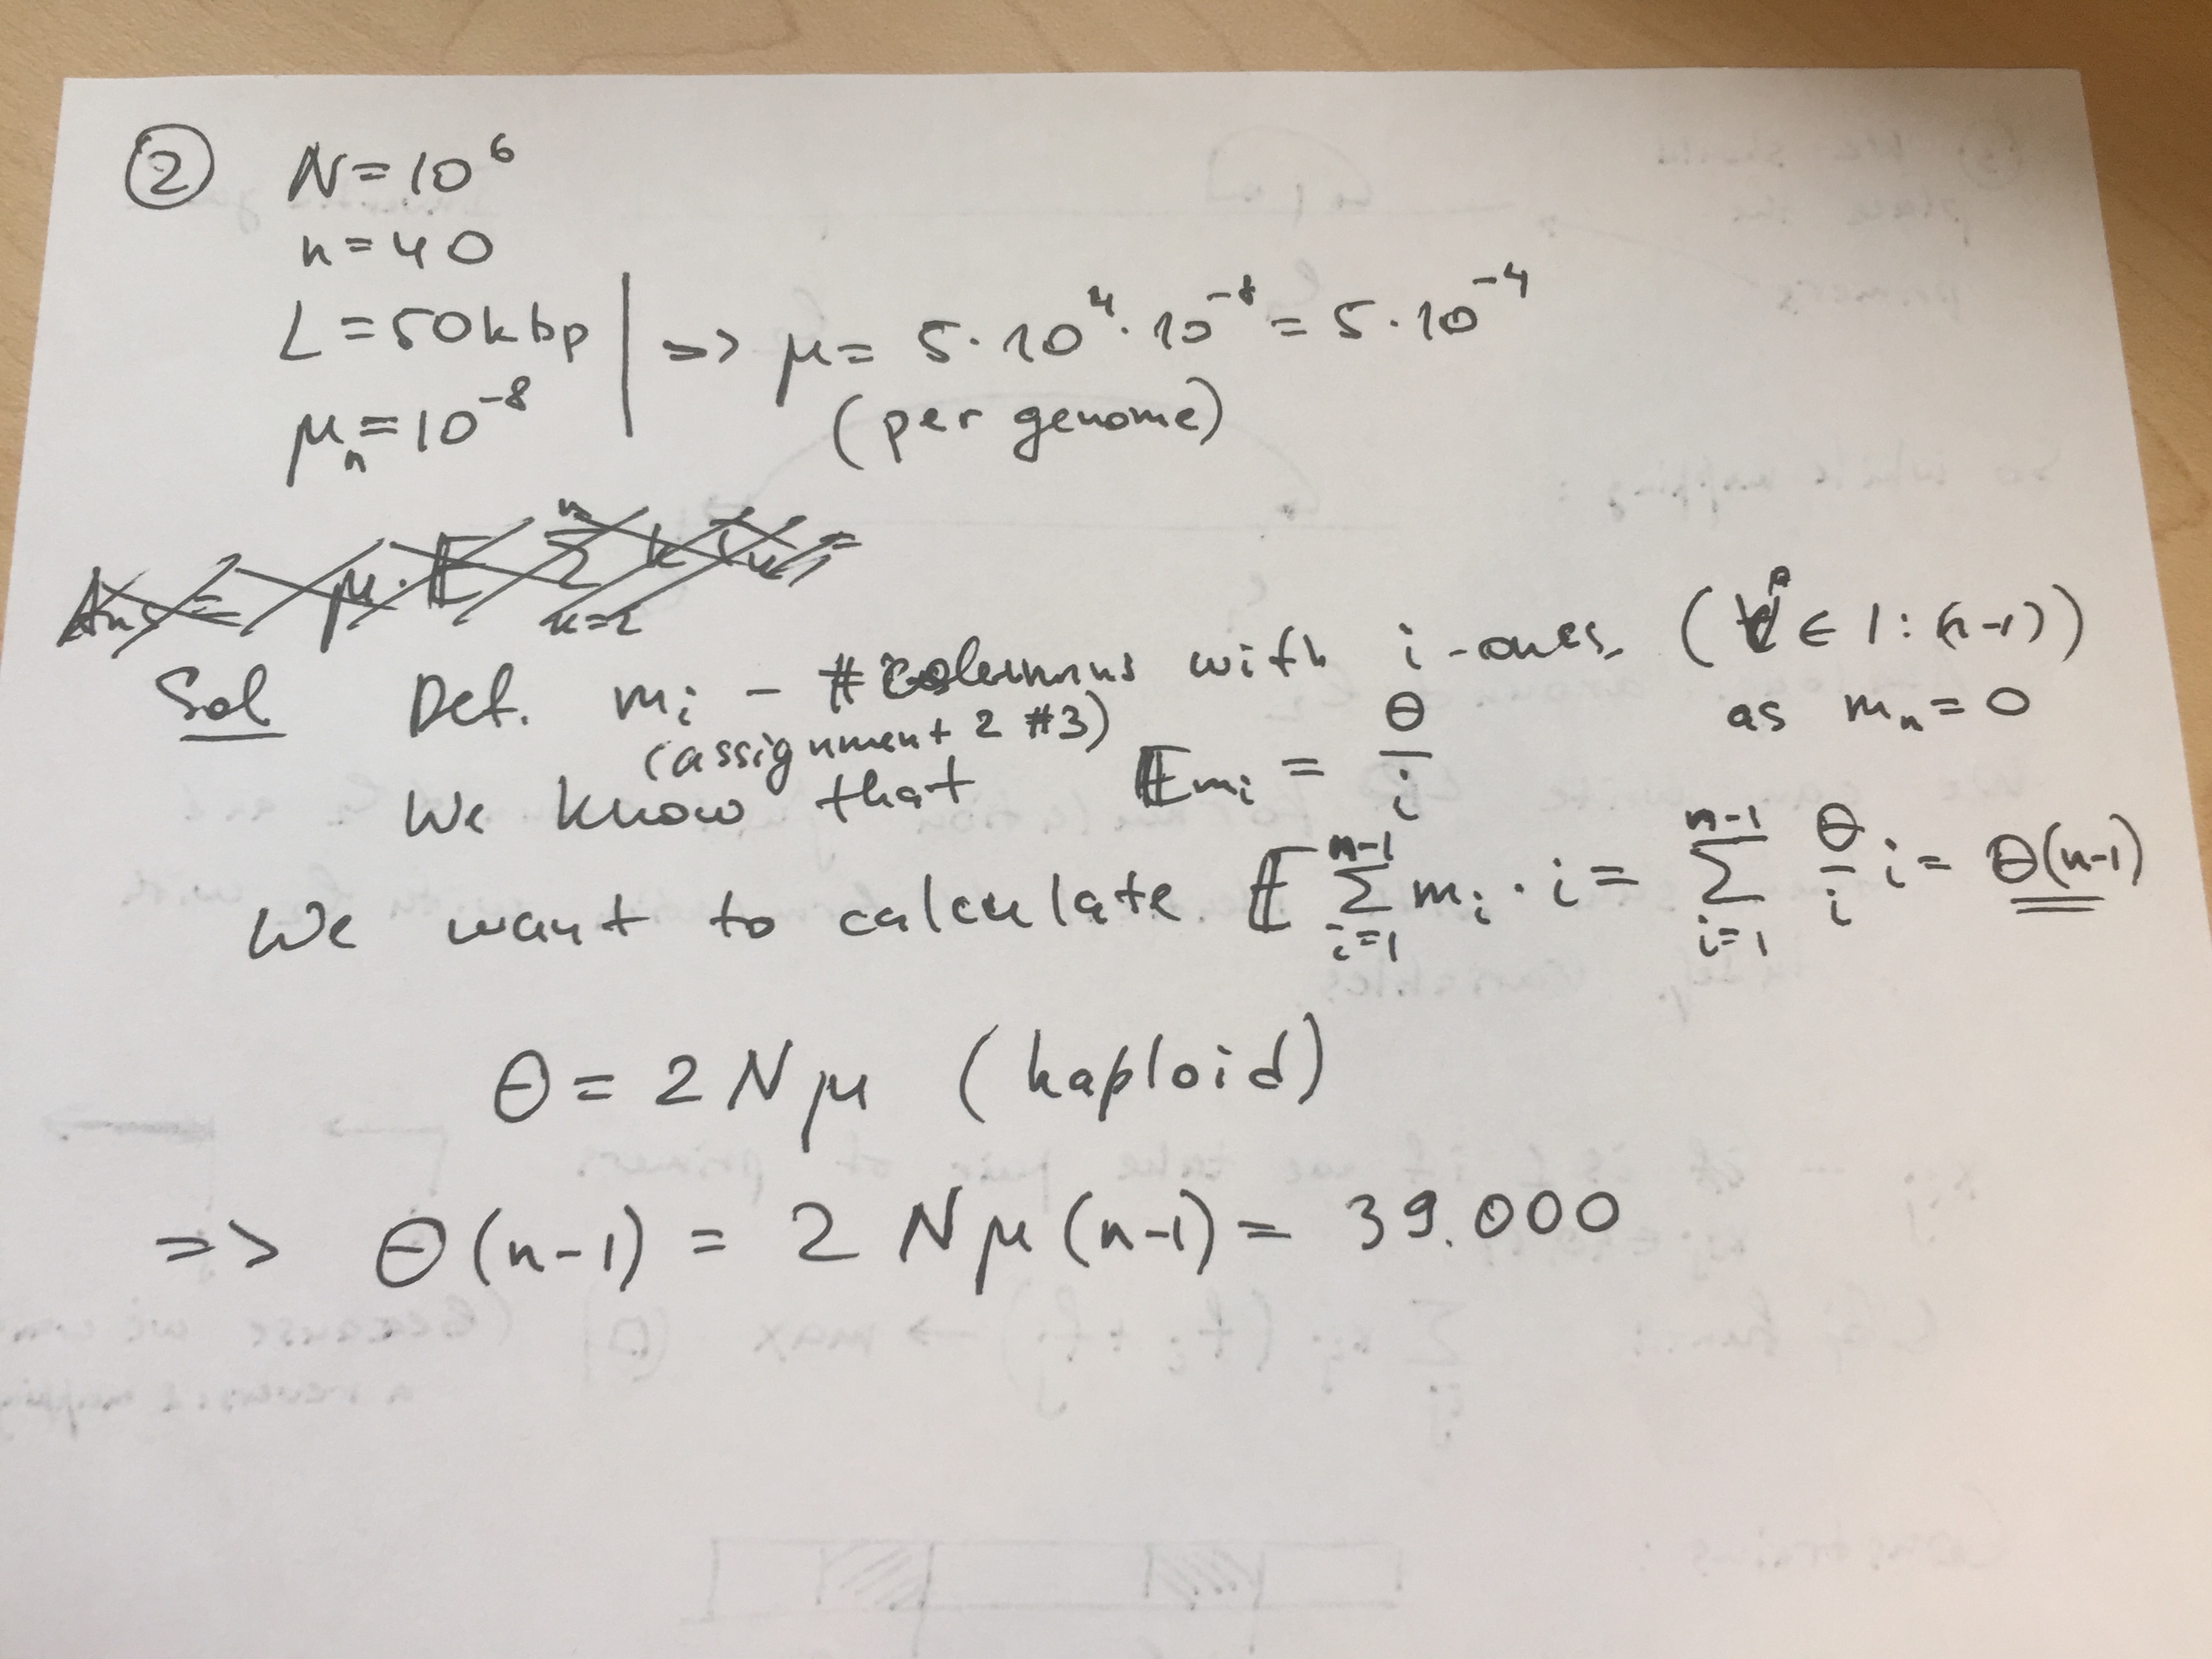 ② N = 10^6
n = 40
L = 50kbp
μ_n = 10^-8
=> μ = 5·10^4·10^-8 = 5·10^-4
(per genome)
Ans = μ·E
Sol Def. m_i - # columns with i-ones. (i ∈ 1:(n-1))
as m_n = 0
(assignment 2 #3)
We know that E m_i = θ/i
We want to calculate E ∑_{i=1}^{n-1} m_i · i = ∑_{i=1}^{n-1} θ/i i = θ(n-1)
θ = 2 N μ (haploid)
=> θ(n-1) = 2 N μ (n-1) = 39.000